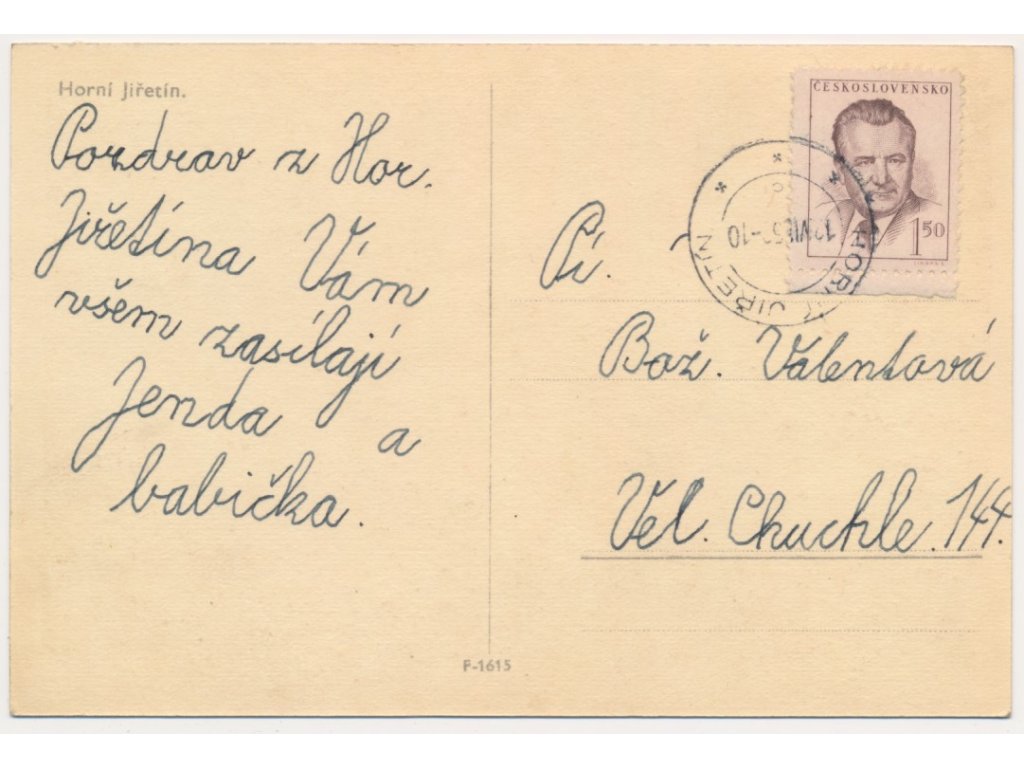 Horní Jiřetín.
Pozdrav z Hor.
Jiřetína Vám
všem zasílají
Jenda a
babička.
F-1615
ČESKOSLOVENSKO
1 50
JIŘETÍN
Pí.
Bož. Valentová
Vel. Chuchle. 144.